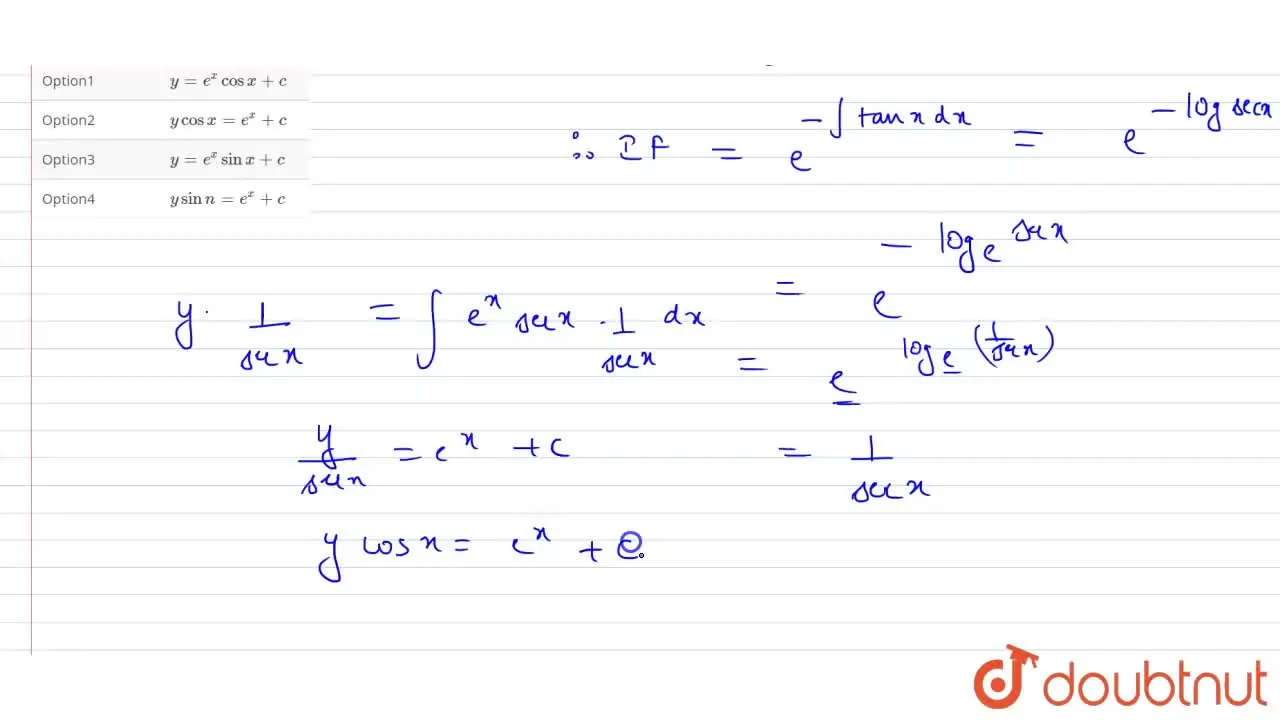 Option1 y = e^x cos x + c
Option2 y cos x = e^x + c
Option3 y = e^x sin x + c
Option4 y sin n = e^x + c
∴ IF = e^(-∫ tan x dx) = e^(- log sec x)
= e^(- log_e sec x)
= e^(log_e (1/sec x))
= 1/sec x
y · 1/sec x = ∫ e^x sec x · 1/sec x dx
y/sec x = e^x + c
y cos x = e^x + c
doubtnut